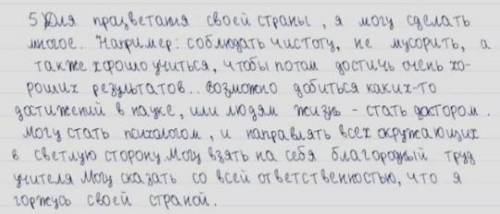 5) Для процветания своей страны, я могу сделать
многое. Например: соблюдать чистоту, не мусорить, а
также хорошо учиться, чтобы потом достичь очень хо-
роших результатов.. возможно добиться каких-то
достижений в науке, или людям жизнь - стать доктором.
Могу стать психологом, и направлять всех окружающих
в светлую сторону. Могу взять на себя благородный труд
учителя. Могу сказать со всей ответственностью, что я
горжусь своей страной.